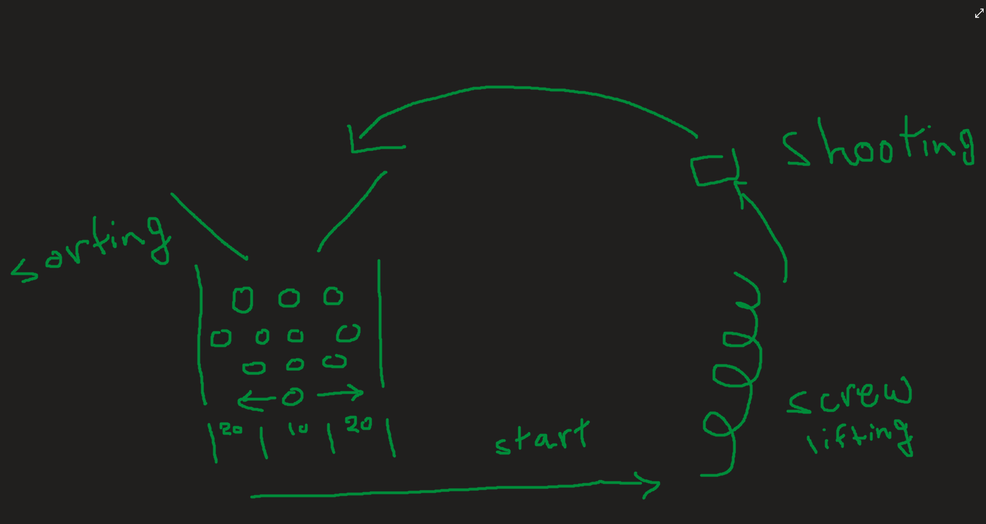 shooting
sorting
20 10 20
start
screw
lifting